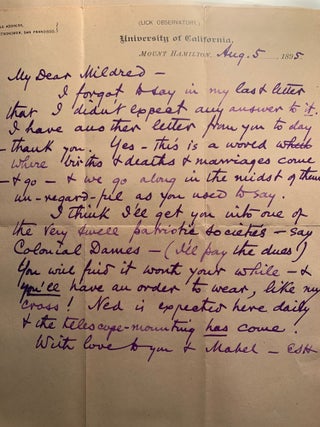 (LICK OBSERVATORY)
University of California,
MOUNT HAMILTON, Aug. 5 1895
My Dear Mildred —
I forgot to say in my last letter
that I didn't expect any answer to it.
I have another letter from you to day
— thank you. Yes – this is a world which
where births & deaths & marriages come
– & go – & we go along in the midst of them
un-regard-ful as you used to say.
I think I'll get you into one of
the very swell patriotic societies – say
Colonial Dames – (I'll pay the dues)
You will find it worth your while – &
you'll have an order to wear, like my
cross! Ned is expected here daily
& the telescope-mounting has come!
With love to you & Mabel – ESH